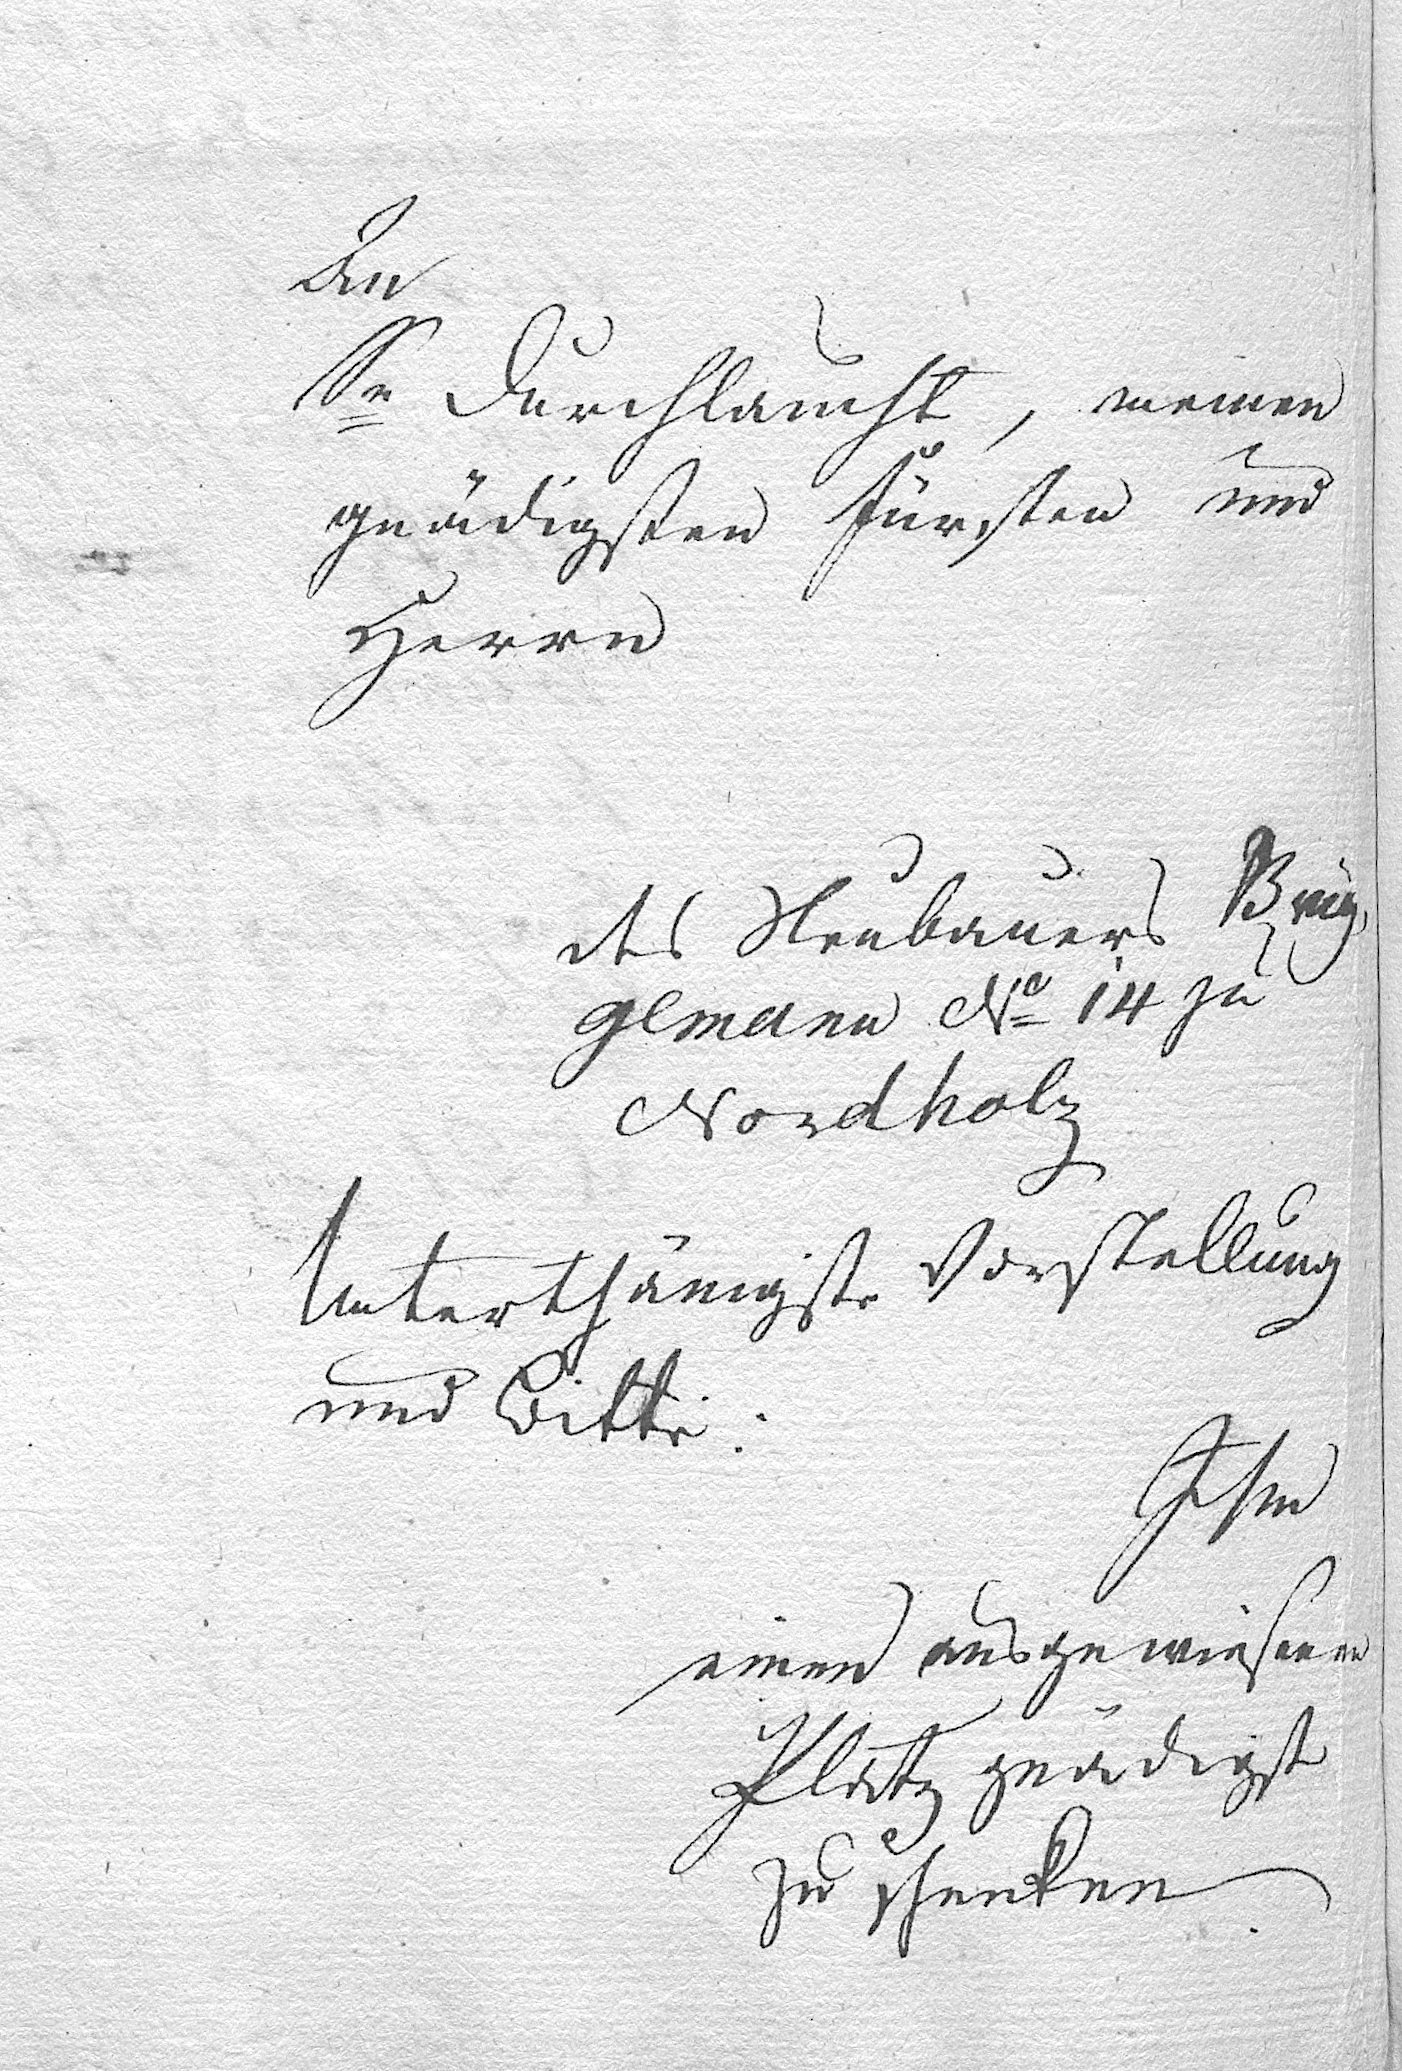 An
Sr Durchlaucht, meinen
gnädigsten Fürsten und
Herrn
des Neubauers Brüg,
gemann No 14 zu
Nordholz
Unterthänigste Vorstellung
und Bitte:
Ihm
einen ausgewiesenen
Platz gnädigst
zu schenken.